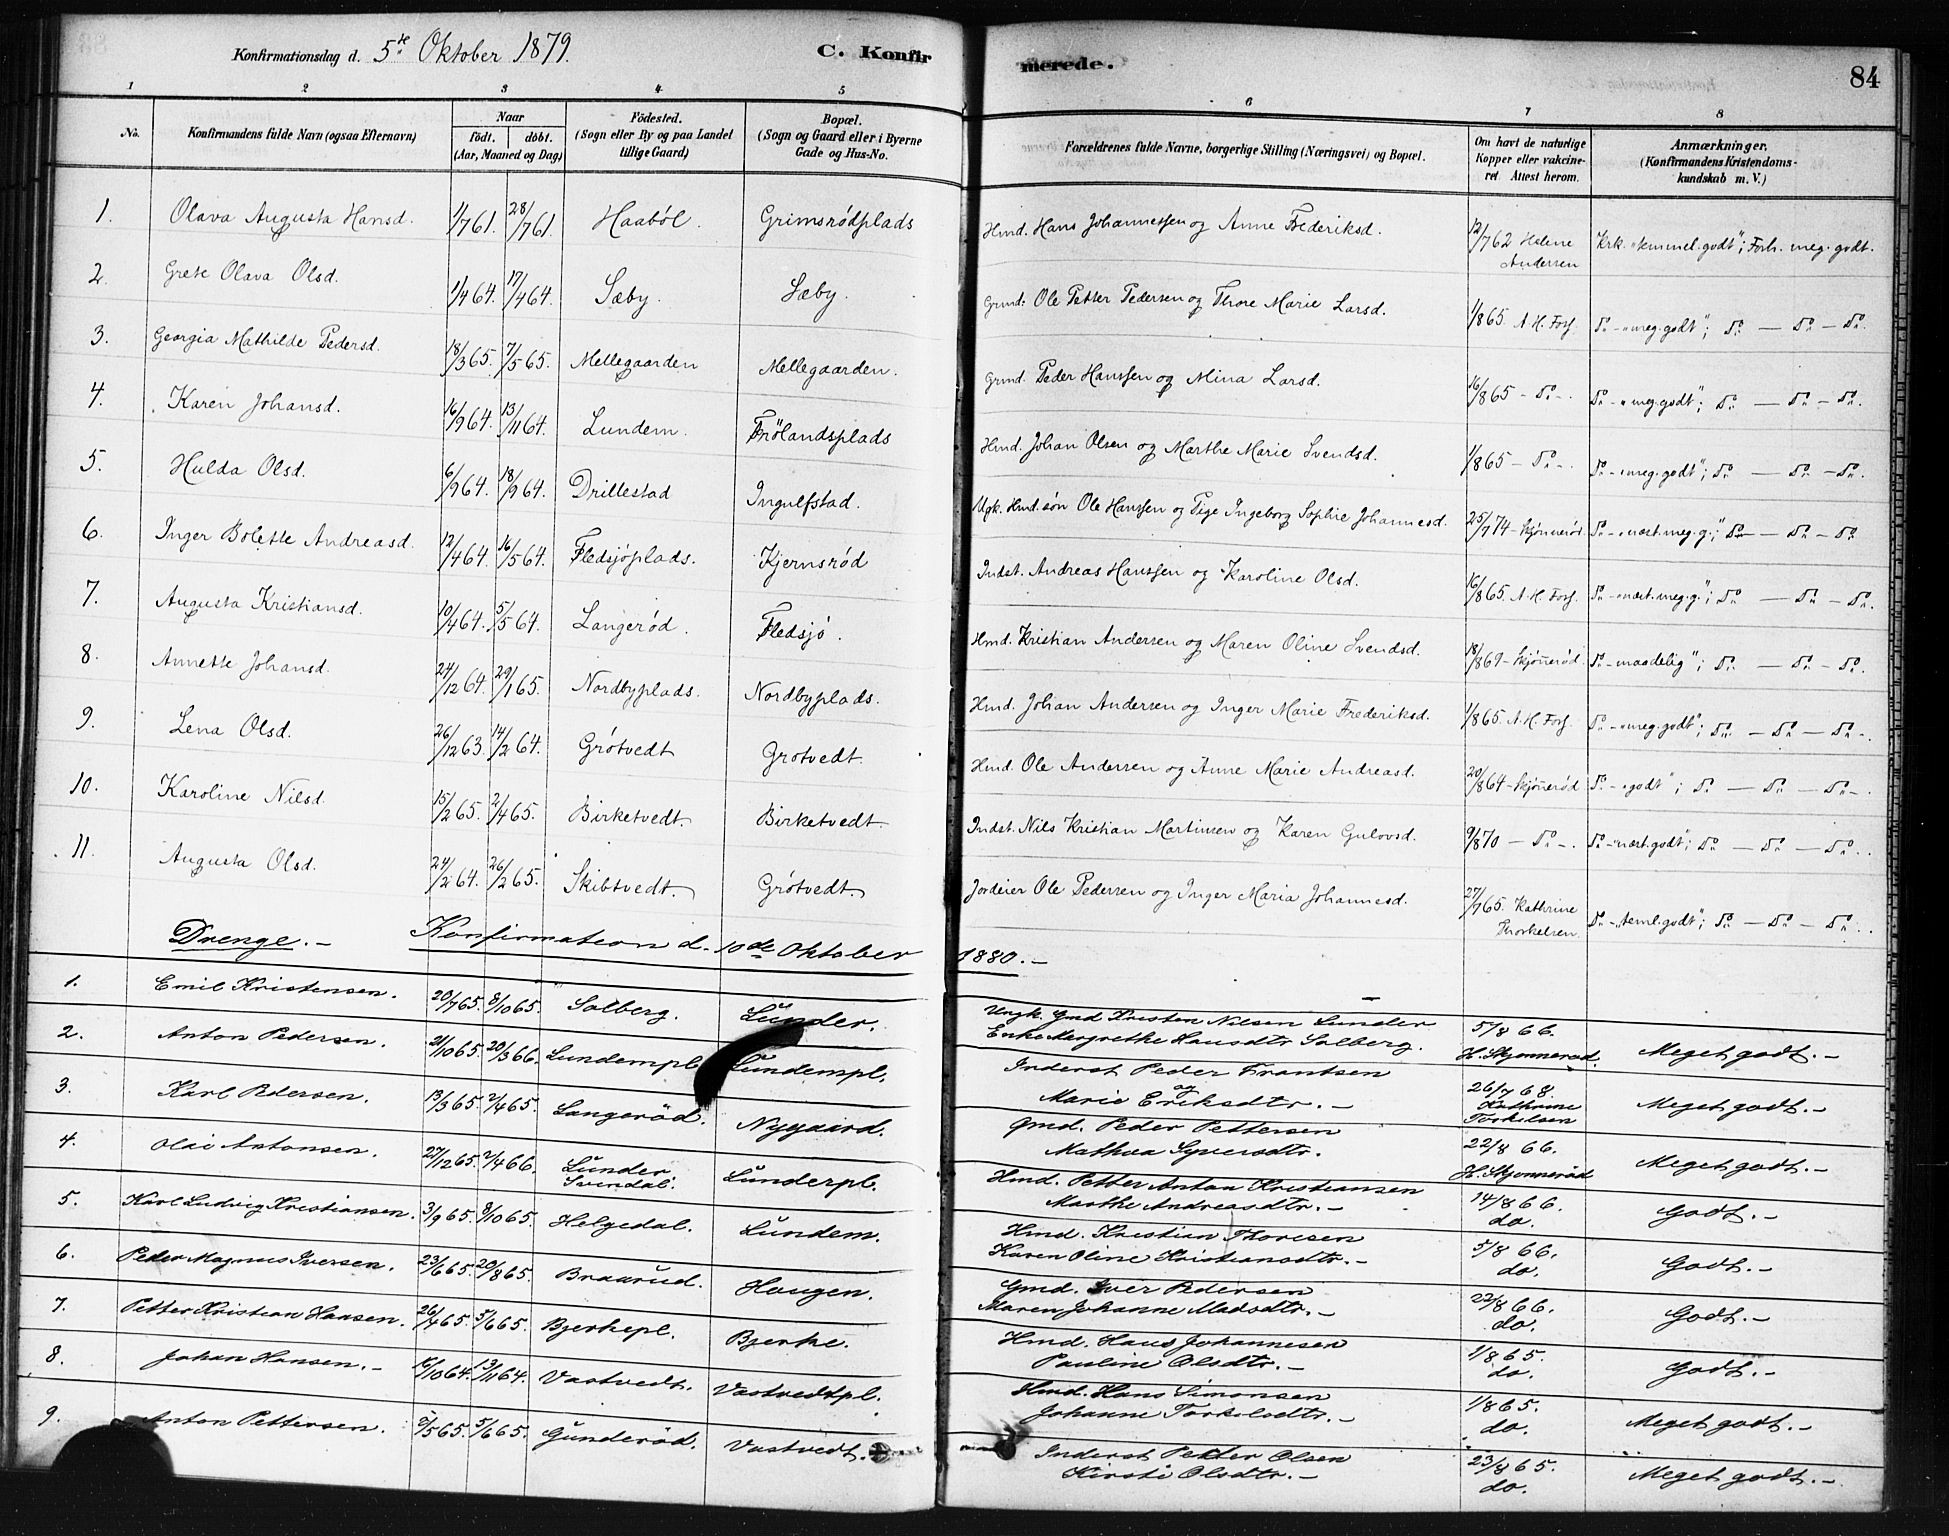 Konfirmationsdag d. 5te Oktober 1879. C. Konfirmerede. 84
1 2 3 4 5 6 7 8
No. Konfirmandens fulde Navn (ogsaa Efternavn) Naar født. døbt. (Aar, Maaned og Dag) Fødested. (Sogn eller By og paa Landet tillige Gaard) Bopæl. (Sogn og Gaard eller i Byerne Gade og Hus-No. Forældrenes fulde Navne, borgerlige Stilling (Næringsvei) og Bopæl. Om havt de naturlige Kopper eller vakcineret Attest herom. Anmærkninger. (Konfirmandens Kristendomskundskab m. V.)
1. Olava Augusta Hansd. 1/7 61. 28/7 61. Haaböl. Grimsrödplads Hmd. Hans Johannessen og Anne Frederiksd. 12/7 62 Helene Andersen Krk. "temmel. godt"; Forh. meg. godt.
2. Grete Olava Olsd. 1/4 64. 17/4 64. Sæby. Sæby. Grmd. Ole Petter Pedersen og Thore Marie Larsd. 1/8 65. A. H. Forf. Do - "meg. godt"; Do — Do — Do.
3. Georgia Mathilde Pedersd. 18/3 65. 7/5 65. Mellegaarden Mellegaarden. Grmd. Peder Hanssen og Mina Larsd. 16/8 65 - Do -. Do - "meg. godt"; Do — Do — Do.
4. Karen Johansd. 16/9 64. 13/11 64. Lundem. Frölandsplads Hmd. Johan Olsen og Marthe Marie Svendsd. 1/8 65 - Do -. Do - "meg. godt"; Do — Do — Do.
5. Hulda Olsd. 6/9 64. 18/9 64. Drillestad Ingulfstad. Ugk. Hmd. sön Ole Hanssen og Pige Ingeborg Sophie Johannesd. 25/7 74 - Skjönneröd Do - "næst. meg. g."; Do — Do — Do
6. Inger Bolette Andreasd. 12/4 64. 16/5 64. Fledsjöplads. Kjernsröd Indst. Andreas Hanssen og Karoline Olsd. 16/8 65. A. H. Forf. Do - "næst. meg. g."; Do — Do — Do.
7. Augusta Kristiansd. 10/4 64. 5/5 64. Langeröd. Fledsjö. Hmd. Kristian Andersen og Maren Oline Svendsd. 18/8 69 - Skjönneröd. Do - "maadelig"; Do — Do — Do.
8. Annette Johansd. 24/12 64. 29/1 65. Nordbyplads. Nordbyplads. Hmd. Johan Andersen og Inger Marie Frederiksd. 1/8 65. A. H. Forf. Do - "meg. godt"; Do — Do — Do -.
9. Lena Olsd. 26/12 63. 14/2 64. Grötvedt Grotvedt. Hmd. Ole Andersen og Anne Marie Andreasd. 20/8 64 - Skjönneröd Do - "godt"; Do — Do — Do -.
10. Karoline Nilsd. 15/2 65. 2/4 65. Birketvedt. Birketvedt. Indst. Nils Kristian Martinsen og Karen Gulovsd. 9/8 70 - Do -. Do - "næst. godt"; Do — Do — Do.
11. Augusta Olsd. 24/2 64. 26/2 65. Skibtvedt. Grötvedt. Jordeier Ole Pedersen og Inger Maria Johannesd. 27/7 65. Kathrine Thorkelsen. Do - "teml. godt"; Do — Do — Do.
Drenge. - Konfirmation d. 10de Oktober 1880. -
1. Emil Kristensen. 20/7 65. 8/10 65. Solberg. Lunder. Ungk. Gmd Kristen Nilsen Lunder Enke Mergrethe Hansdtr Solberg. 5/8 66. H. Skjonnerød. Meget godt. -
2. Anton Pedersen. 21/10 65. 20/3 66. Lundempl. Lundempl. Inderst Peder Frantsen og Marie Eriksdtr. - 26/7 68. Kathrine Torkelsen Meget godt. -
3. Karl Pedersen. 13/3 65. 2/4 65. Langeröd. Nygaard. Gmd. Peder Pettersen Mathea Syversdtr. 22/8 66. H. Skjonneröd Meget godt. -
4. Olai Antonsen. 27/12 65. 2/4 66. Lunder Svendal. Lunderpl. Hmd. Petter Anton Kristiansen Marthe Andreasdtr. - 14/8 66. do. Godt. -
5. Karl Ludvig Kristiansen. 3/9 65. 8/10 65. Helgedal. Lundem. Hmd. Kristian Thoresen Karen Oline Kristiansdtr. - 5/8 66. do. Godt. -
6. Peder Magnus Iversen. 23/6 65. 20/8 65. Braarud. Haugen. Gmd. Iver Pedersen Maren Johanne Madsdtr. - 22/8 66. do. Godt. -
7. Petter Kristian Hansen. 26/4 65. 5/6 65. Bjerkepl. Bjerke. Hmd. Hans Johannesen Pauline Olsdtr. - 1/8 65. do. Godt. -
8. Johan Hansen. - 16/10 64. 13/11 64. Vastvedt. Vastvedtpl. Hmd. Hans Simonsen Johanne Torkelsdtr. - 1/8 65. do. Meget godt. -
9. Anton Pettersen. /5 65. 5/6 65. Gunderöd. Vastvedt. Inderst Petter Olsen Kirsti Olsdtr. - 23/8 65. do. Meget godt. -